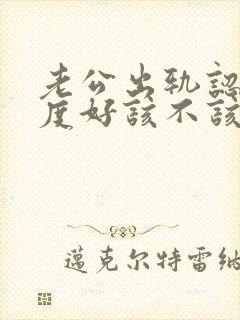 老公出轨認
度好該不該
邁克尔特雷納